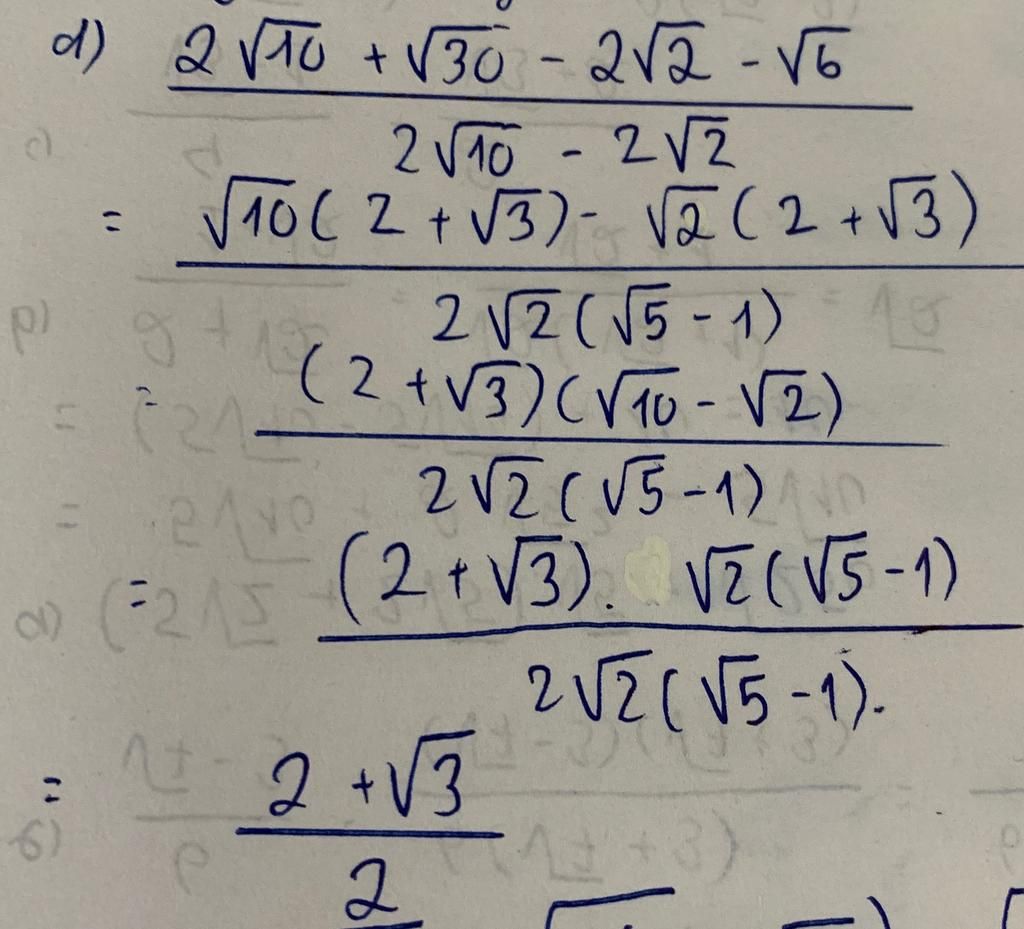 d) 2√10 + √30 - 2√2 - √6
2√10 - 2√2
= √10( 2 + √3) - √2 ( 2 + √3)
2√2(√5 - 1)
= (2 + √3)(√10 - √2)
2√2(√5-1)
= (2 + √3). √2(√5-1)
2√2(√5-1).
= 2 + √3
2